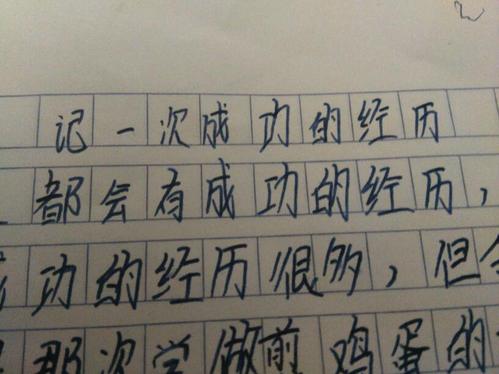 记一次成功的经历
都会有成功的经历，
成功的经历很多，但
那次学做前鸡蛋的